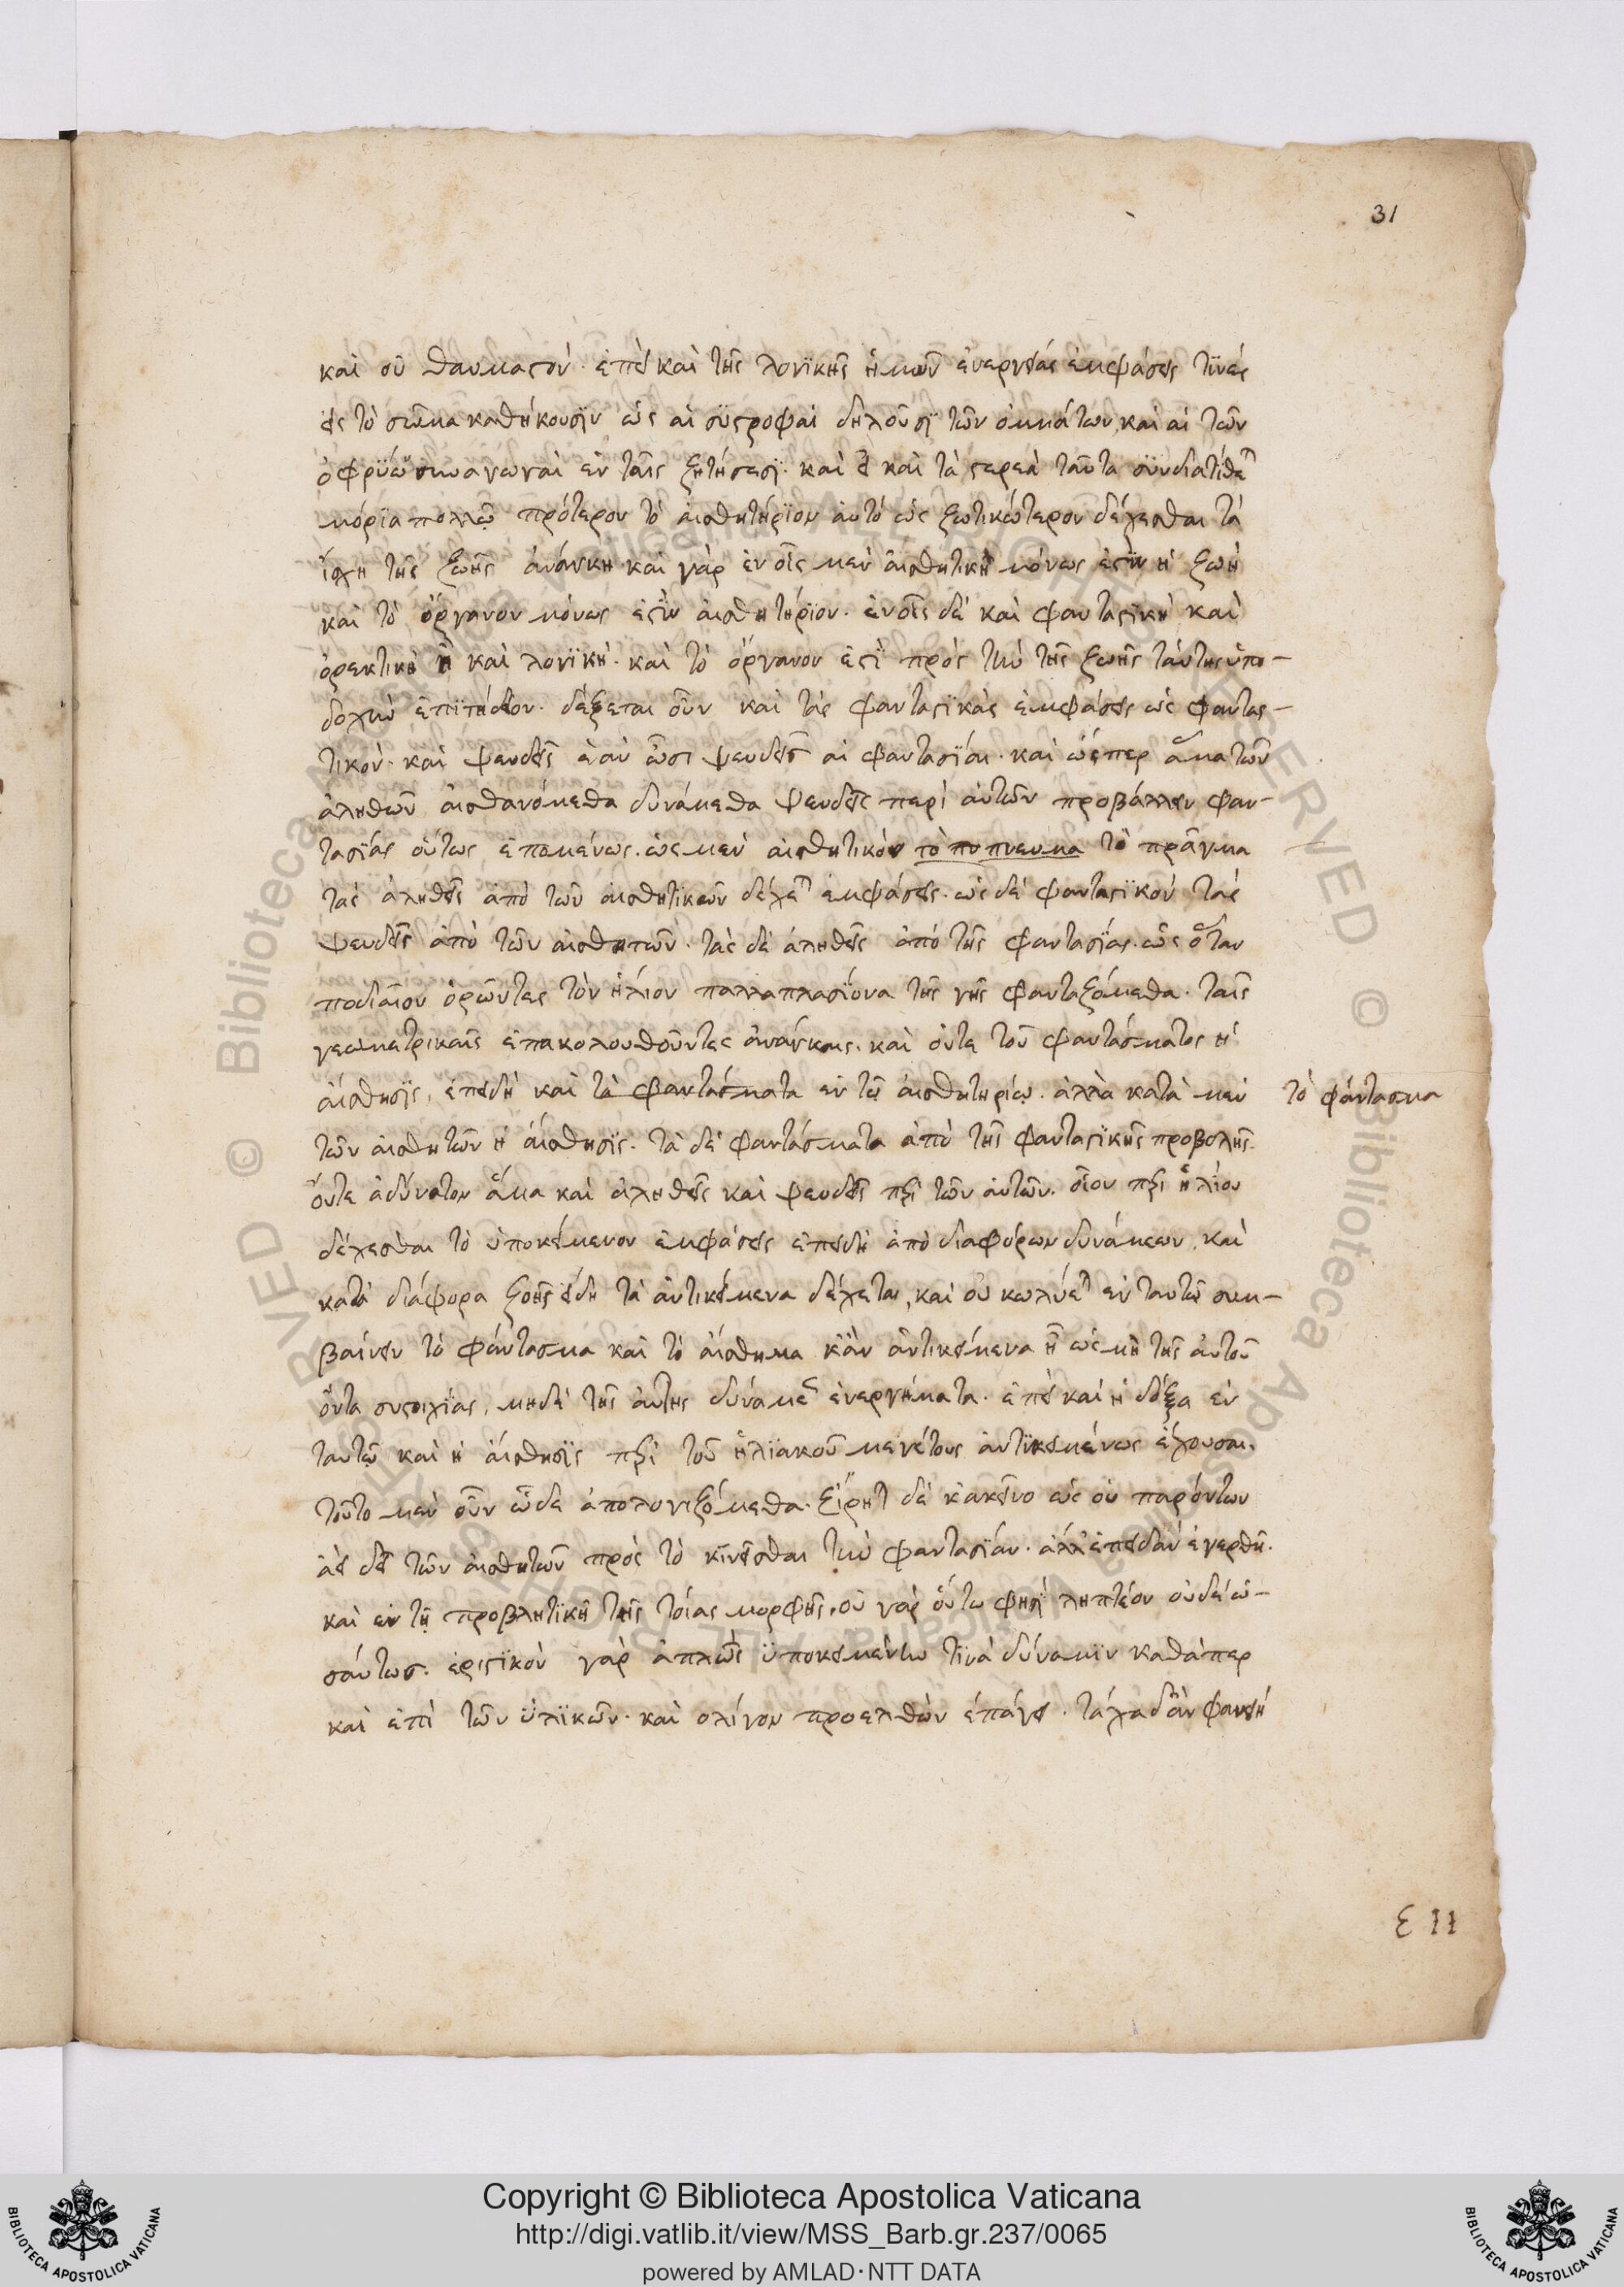 31
καὶ οὐ θαυμαστόν· ἐπεὶ καὶ τῆς λογϊκῆς ἡμῶν ἐνεργείας ἐμφάσεις τϊνὲς
εἰς τὸ σῶμα καθήκουσϊν ὡς αἱ συστροφαὶ δηλοῦσϊ τῶν ὀμμάτων, καὶ αἱ τῶν
ὀφρύων συναγωγαὶ ἐν ταῖς ζητήσεσϊ· καὶ εἰ καὶ τὰ στερεὰ ταῦτα συνδιατίθεται
μόρϊα πολλῷ πρότερον τὸ αἰσθητήρϊον αὐτὸ ὡς ζωτικώτερον δέχεσθαι τὰ
ἴχνη τῆς ζωῆς ἀνάγκη· καὶ γὰρ ἐν οἷς μὲν αἰσθητικὴ μόνως ἐστὶν ἡ ζωὴ
καὶ τὸ ὄργανον μόνως ἐστὶν αἰσθητήρϊον· ἐν οἷς δὲ καὶ φανταστϊκὴ καὶ
ὀρεκτικὴ ἢ καὶ λογϊκὴ· καὶ τὸ ὄργανον ἐστὶ πρὸς τὴν τῆς ζωῆς ταύτης ὑπο-
δοχὴν ἐπϊτήδειον· δέξεται οὖν καὶ τὰς φανταστϊκὰς ἐμφάσεις ὡς φαντασ-
τικόν· καὶ ψευδεῖς ἐὰν ὦσι ψευδεῖς αἱ φαντασϊαι· καὶ ὥσπερ ἅμα τῶν
ἀληθῶν αἰσθανόμεθα δυνάμεθα ψευδεῖς περὶ αὐτῶν προβάλλειν φαν-
τασϊας οὕτως ἑπομένως. ὡς μὲν αἰσθητικὸν το πν πνευμα τὸ πρᾶγμα
τὰς ἀληθεῖς ἀπὸ τῶν αἰσθητικῶν δέχεται ἐμφάσεις· ὡς δὲ φανταστϊκὸν τὰς
ψευδεῖς ἀπὸ τῶν αἰσθητῶν· τὰς δὲ ἀληθεῖς ἀπὸ τῆς φαντασϊας· ὡς ὅταν
ποδιαῖον ὁρῶντες τὸν ἥλιον πολλαπλασϊονα τῆς γῆς φανταζόμεθα· ταῖς
γεωμετρικαῖς ἐπακολουθοῦντες ἀνάγκαις. καὶ οὔτε τοῦ φαντάσματος ἡ
αἴσθησϊς, ἐπειδὴ καὶ τὰ φαντάσματα ἐν τῷ αἰσθητηρίῳ. ἀλλὰ κατὰ μὲν
τὸ φάντασμα
τῶν αἰσθητῶν ἡ αἴσθησϊς· τὰ δὲ φαντάσματα ἀπὸ τῆς φανταστϊκῆς προβολῆς.
οὔτε ἀδύνατον ἅμα καὶ ἀληθεῖς καὶ ψευδεῖς περὶ τῶν αὐτῶν. οἷον περὶ ἡλίου
δέχεσθαι τὸ ὑποκείμενον ἐμφάσεις ἐπειδὴ ἀπὸ διαφόρων δυνάμεων, καὶ
κατὰ διάφορα ζοῆς εἴδη τὰ ἀντικείμενα δέχεται, καὶ οὐ κωλύεται ἐν ταυτῷ συμ-
βαίνειν τὸ φάντασμα καὶ τὸ αἴσθημα κἂν ἀντικείμενα ᾖ ὡς μὴ τῆς αὐτοῦ
ὄντα συστοιχίας, μηδὲ τῆς αὐτῆς δυνάμεως ἐνεργήματα· ἐπεὶ καὶ ἡ δόξα ἐν
ταυτῷ καὶ ἡ αἴσθησϊς περὶ τοῦ ἡλϊακοῦ μεγέθους ἀντϊκειμένως ἔχουσαι.
τοῦτο μὲν οὖν ὧδε ἀπολογιζόμεθα· εἴρηται δὲ κἀκεῖνο ὡς οὐ παρόντων
ἀεὶ δεῖ τῶν αἰσθητῶν πρὸς τὸ κινεῖσθαι τὴν φαντασϊαν· ἀλλ' ἐπειδὰν ἐγερθῇ.
καὶ ἐν τῇ προβλητϊκῇ τῆς τοίας μορφῆς, οὐ γὰρ οὕτω φησὶ ληπτέον οὐδὲ ὡ-
σαύτως. ἐριστϊκὸν γὰρ ἁπλῶς ὑποκειμένην τϊνὰ δύναμϊν καθάπερ
καὶ ἐπὶ τῶν ὑλϊκῶν· καὶ ὀλίγον προελθὼν ἐπάγει· τάχα δ' ἂν φανείη
ε 11
Copyright © Biblioteca Apostolica Vaticana
http://digi.vatlib.it/view/MSS_Barb.gr.237/0065
powered by AMLAD·NTT DATA